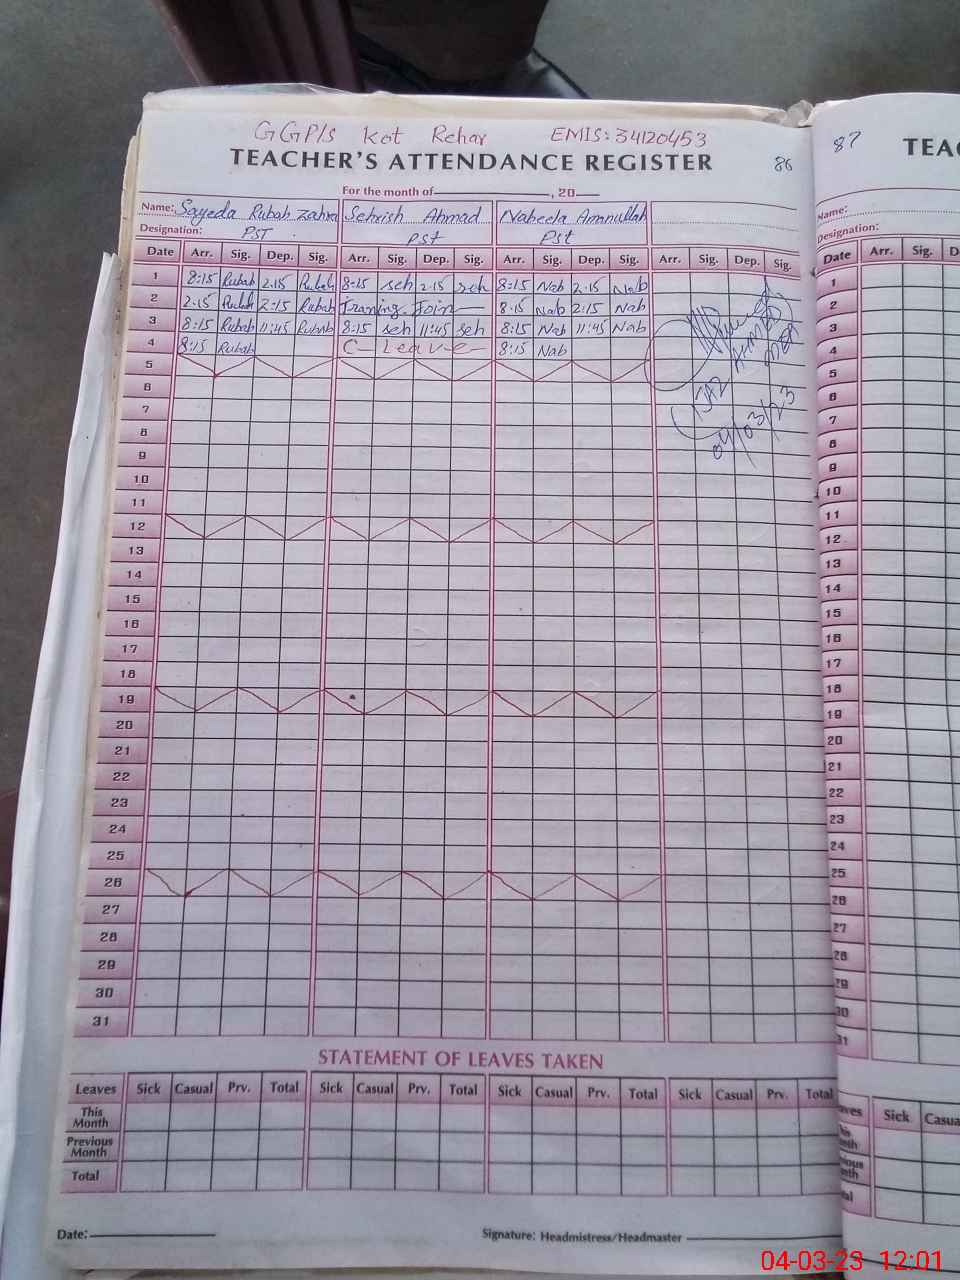 GGP/s Kot Rehar EMIS: 34120453
TEACHER'S ATTENDANCE REGISTER 86
For the month of ______, 20 ___
Name: Sayeda Rubab Zahra Sehrish Ahmad Nabeela Amanullah
Designation: PST PST PST
Date Arr. Sig. Dep. Sig. Arr. Sig. Dep. Sig. Arr. Sig. Dep. Sig. Arr. Sig. Dep. Sig.
1 8:15 Rubab 2:15 Rubab 8:15 seh 2:15 seh 8:15 Nab 2:15 Nab
2 2:15 Rubab 2:15 Rubab Traning Join — 8:15 Nab 2:15 Nab
3 8:15 Rubab 11:45 Rubab 8:15 seh 11:45 seh 8:15 Nab 11:45 Nab
4 8:15 Rubab C- Leave- 8:15 Nab
5
6
7
8
9
10
11
12
13
14
15
16
17
18
19
20
21
22
23
24
25
26
27
28
29
30
31
IJAZ AHMAD
04/03/23
STATEMENT OF LEAVES TAKEN
Leaves Sick Casual Prv. Total Sick Casual Prv. Total Sick Casual Prv. Total Sick Casual Prv. Total
This Month
Previous Month
Total
Date: ______ Signature: Headmistress/Headmaster ______
87
TEAC
Name:
Designation:
Date Arr. Sig. D
1
2
3
4
5
6
7
8
9
10
11
12
13
14
15
16
17
18
19
20
21
22
23
24
25
26
27
28
29
30
31
aves Sick Casua
his
onth
vious
nth
tal
04-03-23 12:01